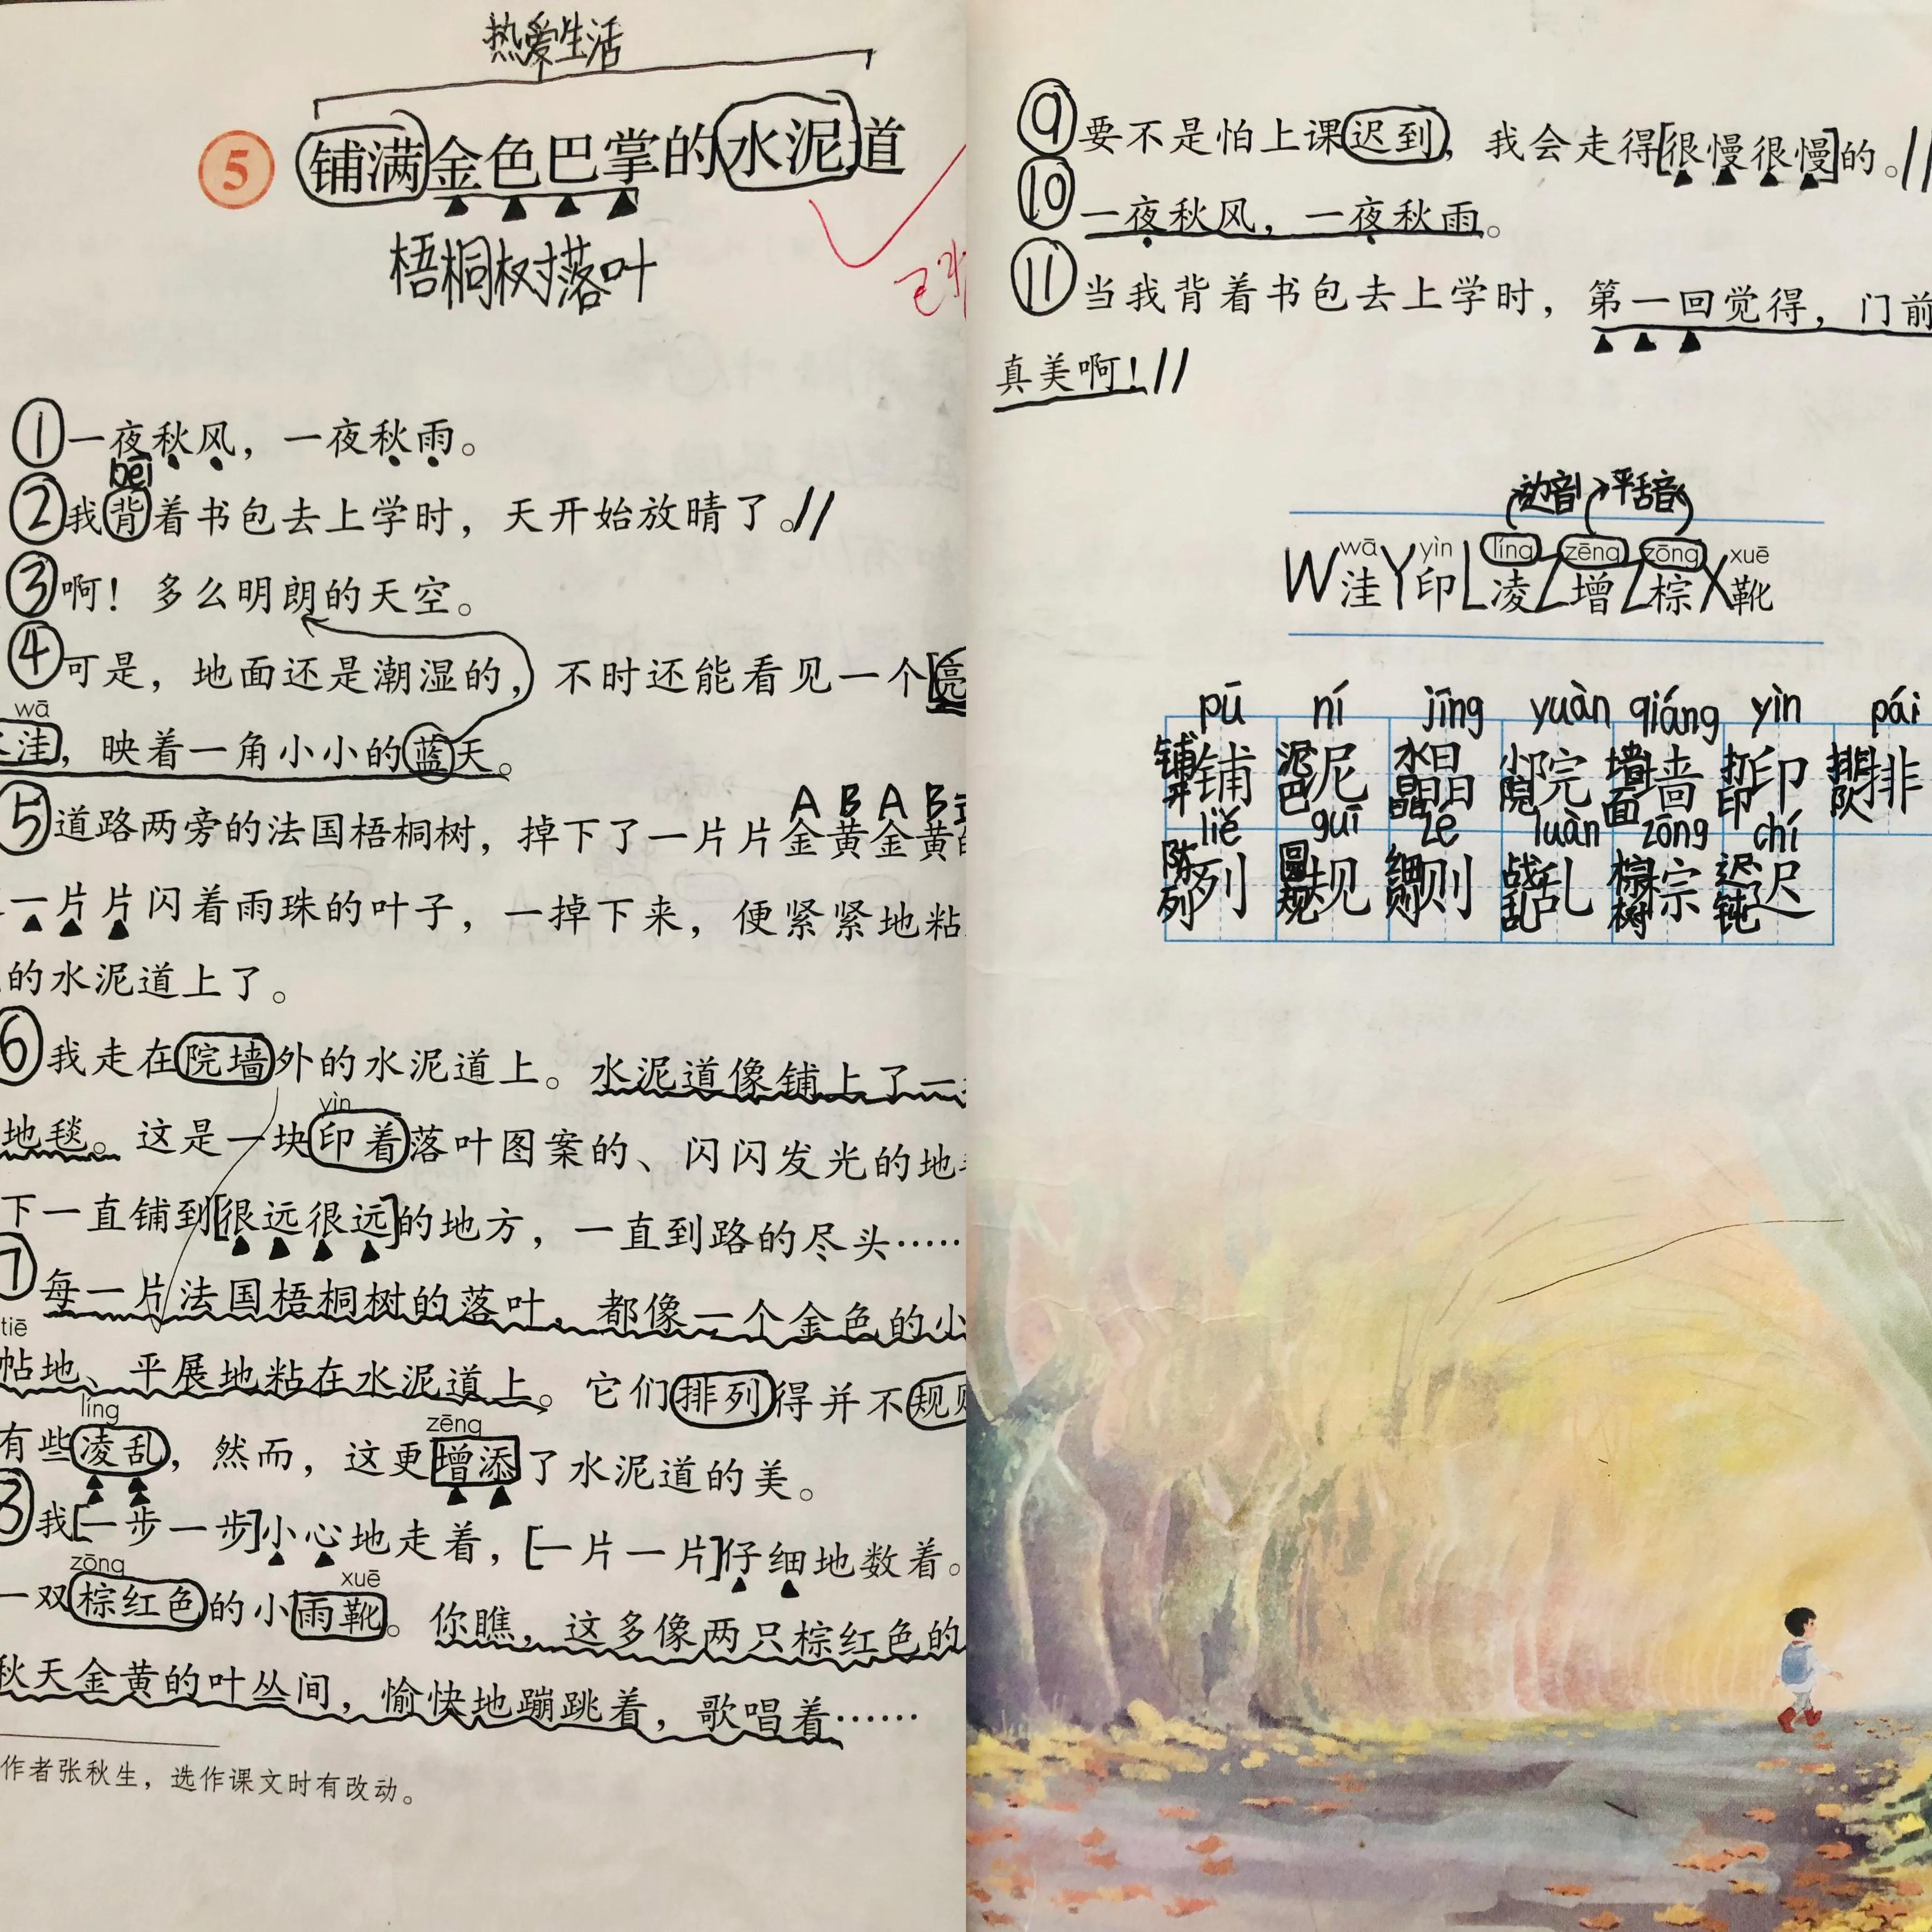 热爱生活
5 铺满金色巴掌的水泥道
梧桐树落叶
①一夜秋风，一夜秋雨。
bēi
②我背着书包去上学时，天开始放晴了。//
③啊！多么明朗的天空。
④可是，地面还是潮湿的，不时还能看见一个亮
wā
洼，映着一角小小的蓝天。
A B A B式
⑤道路两旁的法国梧桐树，掉下了一片片金黄金黄的
一片片闪着雨珠的叶子，一掉下来，便紧紧地粘
的水泥道上了。
⑥我走在院墙外的水泥道上。水泥道像铺上了一
yìn
地毯。这是一块印着落叶图案的、闪闪发光的地
下一直铺到[很远很远]的地方，一直到路的尽头……
7 每一片法国梧桐树的落叶，都像一个金色的小
tiē
帖地、平展地粘在水泥道上。它们排列得并不规则
líng zēng
有些凌乱，然而，这更增添了水泥道的美。
8 我[一步一步]小心地走着，[一片一片]仔细地数着。
zōng xuē
一双棕红色的小雨靴。你瞧，这多像两只棕红色的
秋天金黄的叶丛间，愉快地蹦跳着，歌唱着……
作者张秋生，选作课文时有改动。
⑨要不是怕上课迟到，我会走得[很慢很慢]的。//
⑩一夜秋风，一夜秋雨。
⑪当我背着书包去上学时，第一回觉得，门前
真美啊！//
边音 平舌音
wā yìn líng zēng zōng xuē
W洼Y印L凌Z增Z棕X靴
pū ní jīng yuàn qiáng yìn pái
铺开 铺 泥巴 泥 水晶 晶 小院 院 墙面 墙 打印 印 排队 排
liè guī zé luàn zōng chí
陈列 列 圆规 规 细则 则 战乱 乱 棕树 棕 迟钝 迟